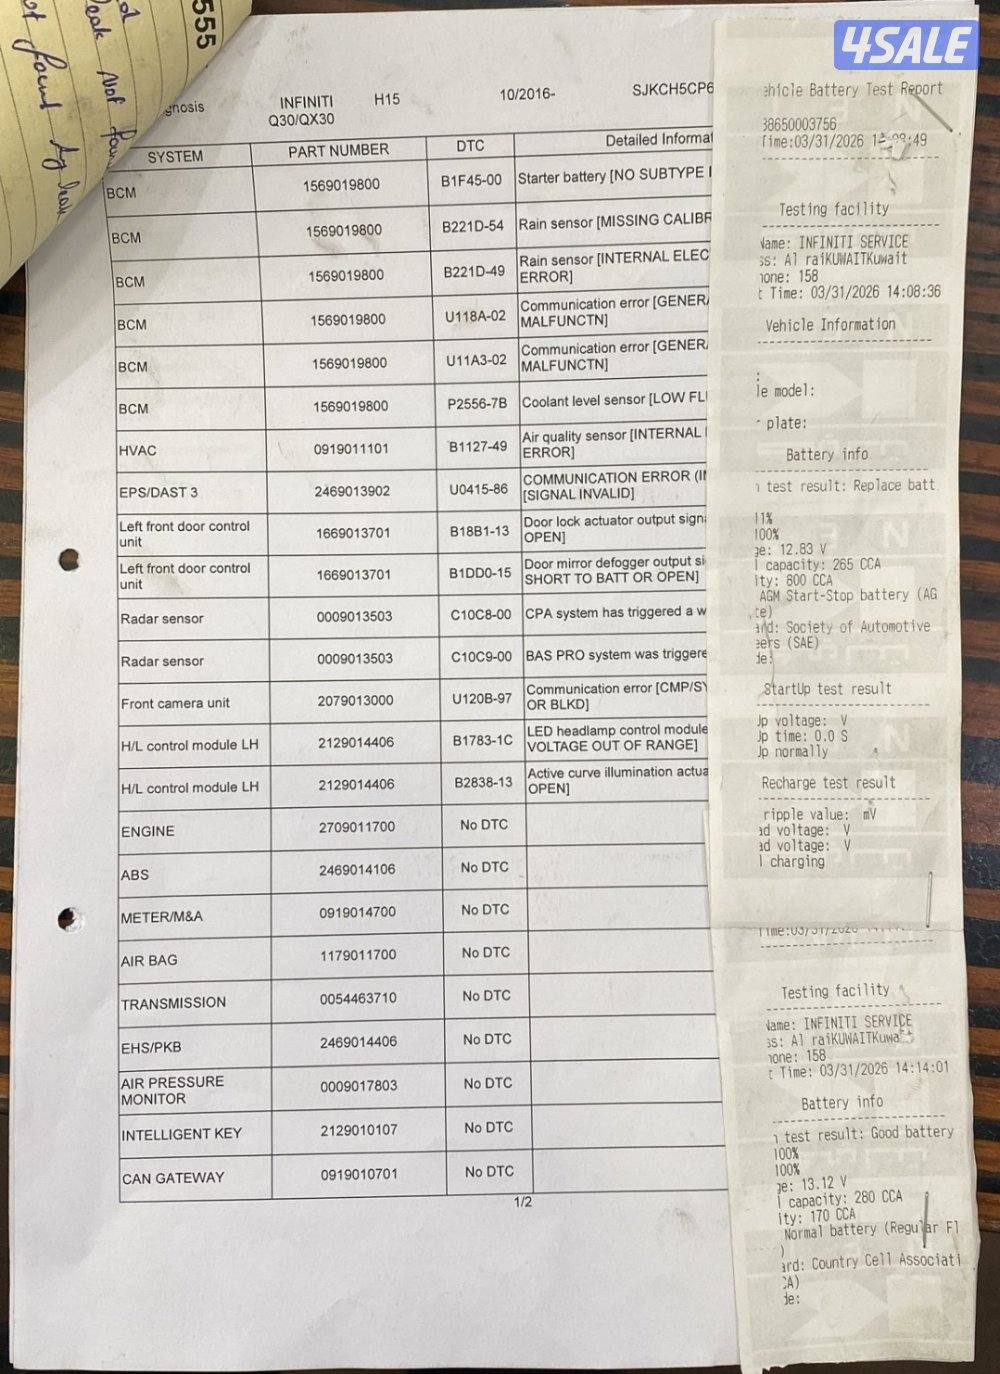 4SALE
555
Not
gnosis
INFINITI Q30/QX30
H15
10/2016-
SJKCH5CP6
SYSTEM PART NUMBER DTC Detailed Informat
BCM 1569019800 B1F45-00 Starter battery [NO SUBTYPE I
BCM 1569019800 B221D-54 Rain sensor [MISSING CALIBR
BCM 1569019800 B221D-49 Rain sensor [INTERNAL ELEC
ERROR]
BCM 1569019800 U118A-02 Communication error [GENERA
MALFUNCTN]
BCM 1569019800 U11A3-02 Communication error [GENERA
MALFUNCTN]
BCM 1569019800 P2556-7B Coolant level sensor [LOW FL
HVAC 0919011101 B1127-49 Air quality sensor [INTERNAL
ERROR]
EPS/DAST 3 2469013902 U0415-86 COMMUNICATION ERROR (IN
[SIGNAL INVALID]
Left front door control
unit 1669013701 B18B1-13 Door lock actuator output signa
OPEN]
Left front door control
unit 1669013701 B1DD0-15 Door mirror defogger output si
SHORT TO BATT OR OPEN]
Radar sensor 0009013503 C10C8-00 CPA system has triggered a w
Radar sensor 0009013503 C10C9-00 BAS PRO system was triggere
Front camera unit 2079013000 U120B-97 Communication error [CMP/SY
OR BLKD]
H/L control module LH 2129014406 B1783-1C LED headlamp control module
VOLTAGE OUT OF RANGE]
H/L control module LH 2129014406 B2838-13 Active curve illumination actua
OPEN]
ENGINE 2709011700 No DTC
ABS 2469014106 No DTC
METER/M&A 0919014700 No DTC
AIR BAG 1179011700 No DTC
TRANSMISSION 0054463710 No DTC
EHS/PKB 2469014406 No DTC
AIR PRESSURE
MONITOR 0009017803 No DTC
INTELLIGENT KEY 2129010107 No DTC
CAN GATEWAY 0919010701 No DTC
1/2
ehicle Battery Test Report
38650003756
Time:03/31/2026
Testing facility
Name: INFINITI SERVICE
ss: Al raiKUWAITKuwait
hone: 158
t Time: 03/31/2026 14:08:36
Vehicle Information
:
le model:
plate:
Battery info
n test result: Replace batt
11%
100%
ge: 12.83 V
l capacity: 265 CCA
ity: 800 CCA
AGM Start-Stop battery (AG
te)
ard: Society of Automotive
eers (SAE)
de:
StartUp test result
Up voltage: V
Up time: 0.0 S
Up normally
Recharge test result
ripple value: mV
ad voltage: V
ad voltage: V
l charging
Testing facility
Name: INFINITI SERVICE
ss: Al raiKUWAITKuwait
hone: 158
t Time: 03/31/2026 14:14:01
Battery info
n test result: Good battery
100%
100%
ge: 13.12 V
l capacity: 280 CCA
ity: 170 CCA
Normal battery (Regular Fl
)
ard: Country Cell Associati
CA)
de: